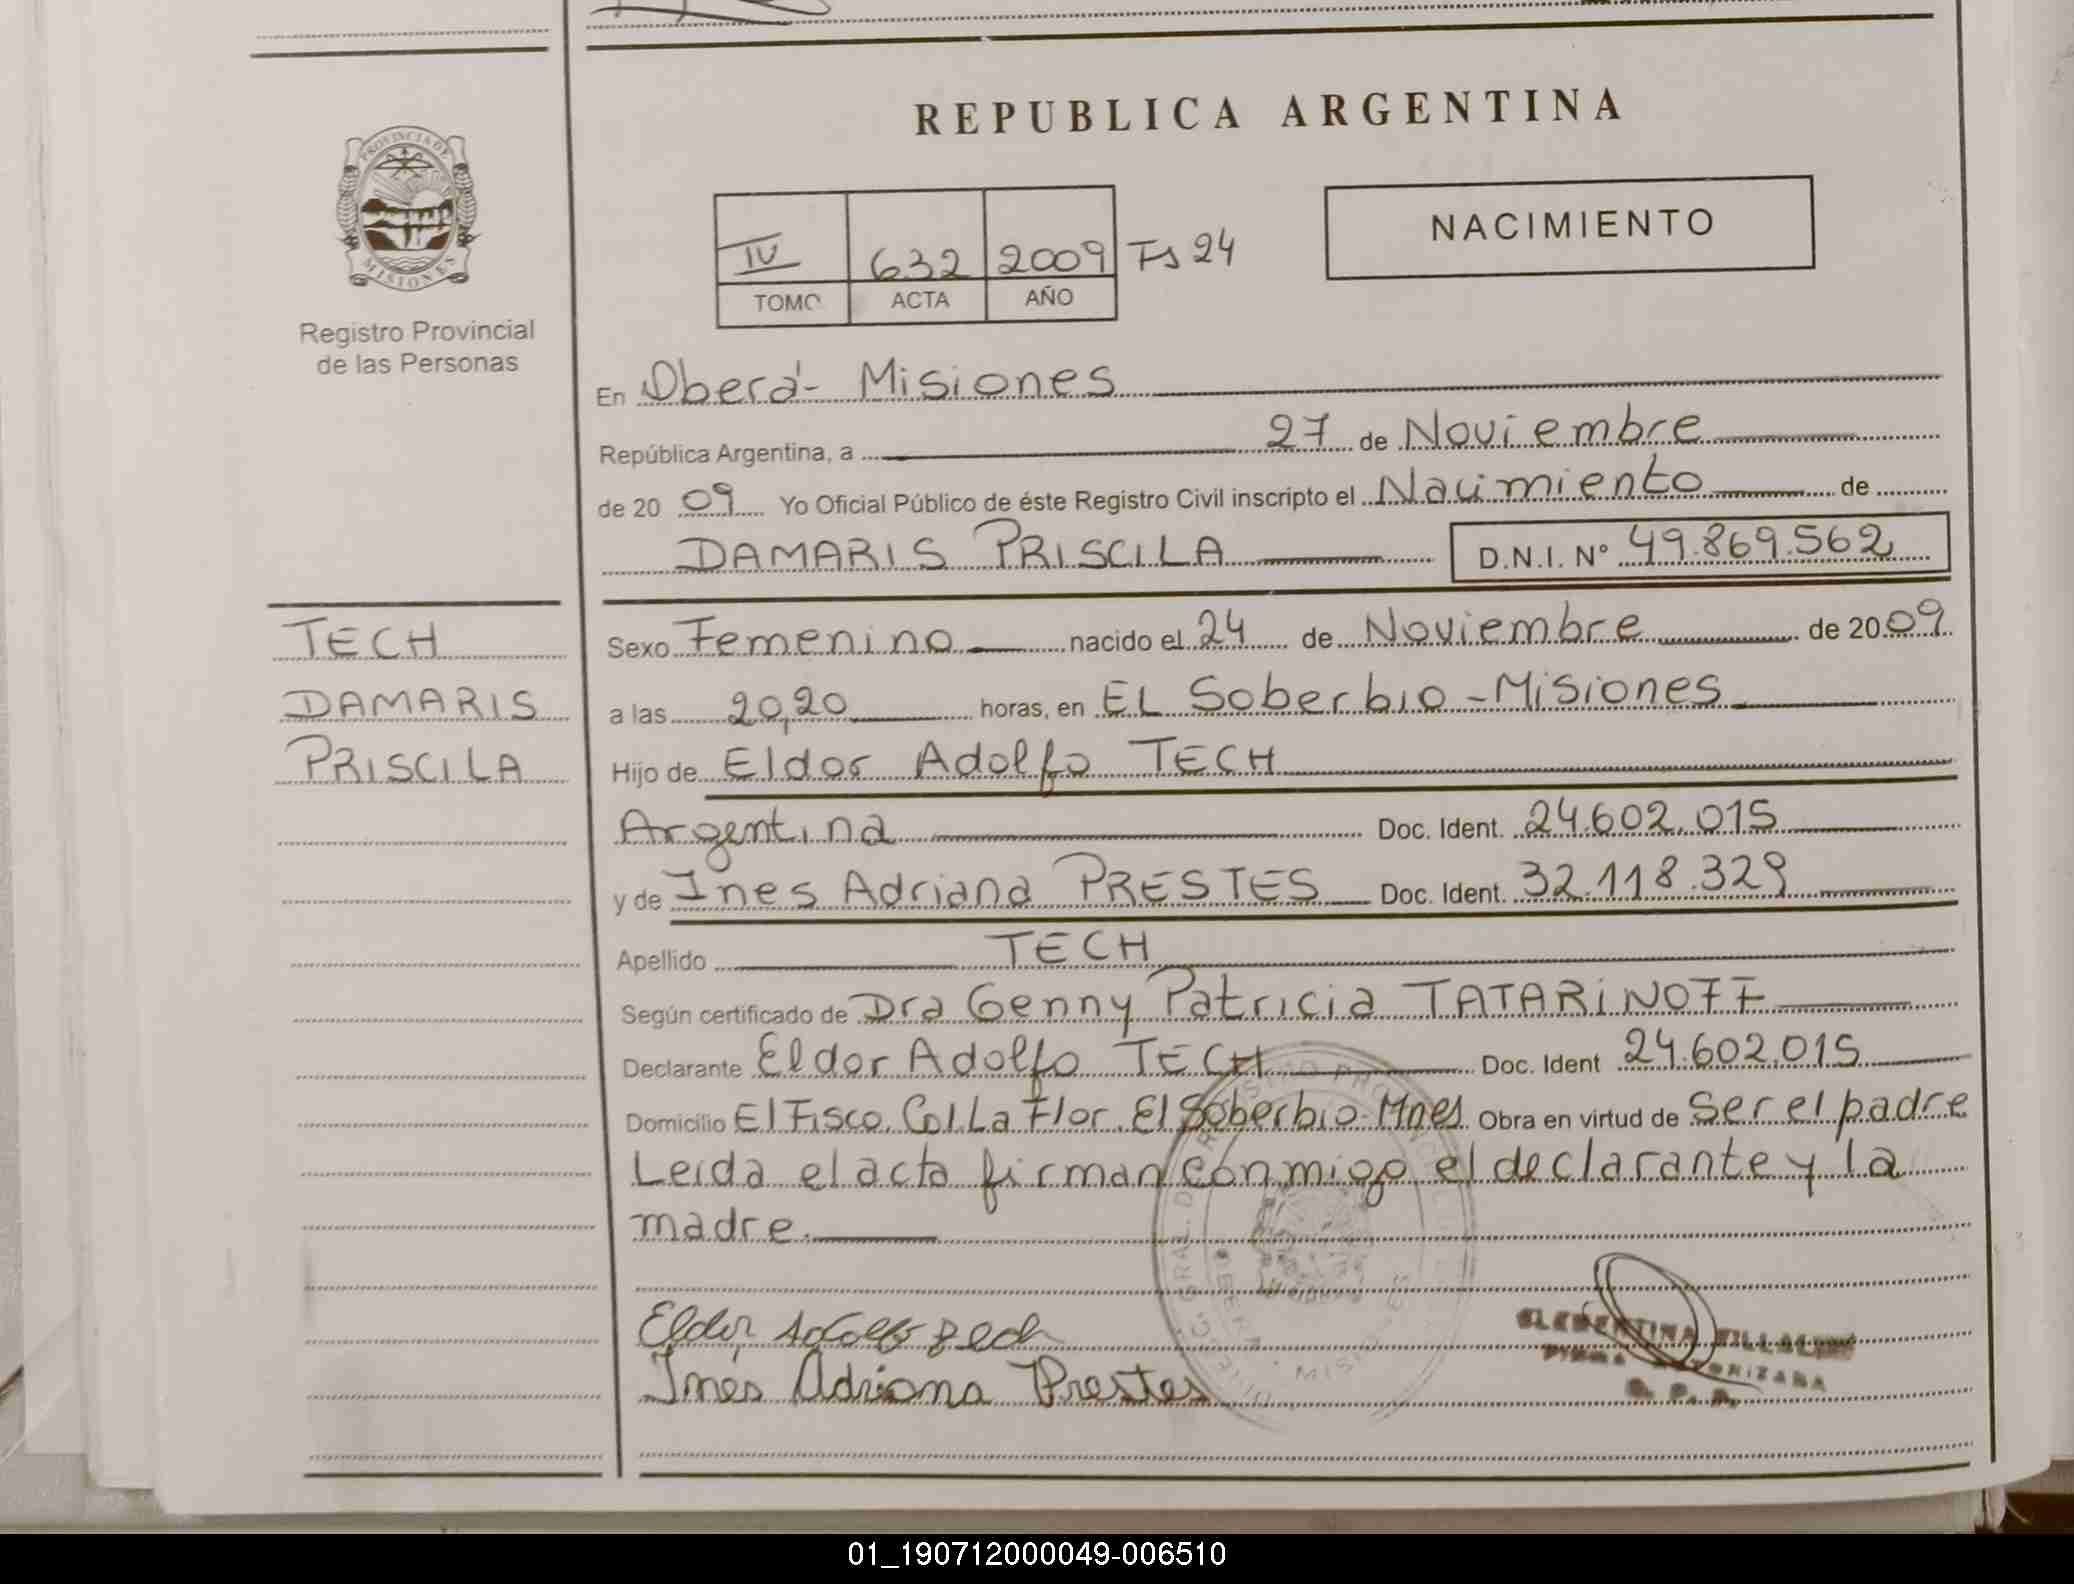 REPUBLICA ARGENTINA
PROVINCIA DE
MISIONES
Registro Provincial
de las Personas
NACIMIENTO
IV 632 2009 Fs 24
TOMO ACTA AÑO
En Oberá - Misiones
República Argentina, a 27 de Noviembre
de 20 09 Yo Oficial Público de éste Registro Civil inscripto el Nacimiento de
DAMARIS PRISCILA D.N.I. N° 49.869.562
TECH
DAMARIS
PRISCILA
Sexo Femenino nacido el 24 de Noviembre de 20 09
a las 20,20 horas, en EL Soberbio - Misiones
Hijo de Eldor Adolfo TECH
Argentina Doc. Ident. 24.602.015
y de Ines Adriana PRESTES Doc. Ident. 32.118.329
Apellido TECH
Según certificado de Dra Genny Patricia TATARINOFF
Declarante Eldor Adolfo TECH Doc. Ident 24.602.015
Domicilio El Fisco. Col. La Flor. El Soberbio - Mnes Obra en virtud de Ser el padre
Leida el acta firman conmigo el declarante y la
madre.
Eldor Adolfo Tech
Ines Adriana Prestes
MISIONES
01_190712000049-006510